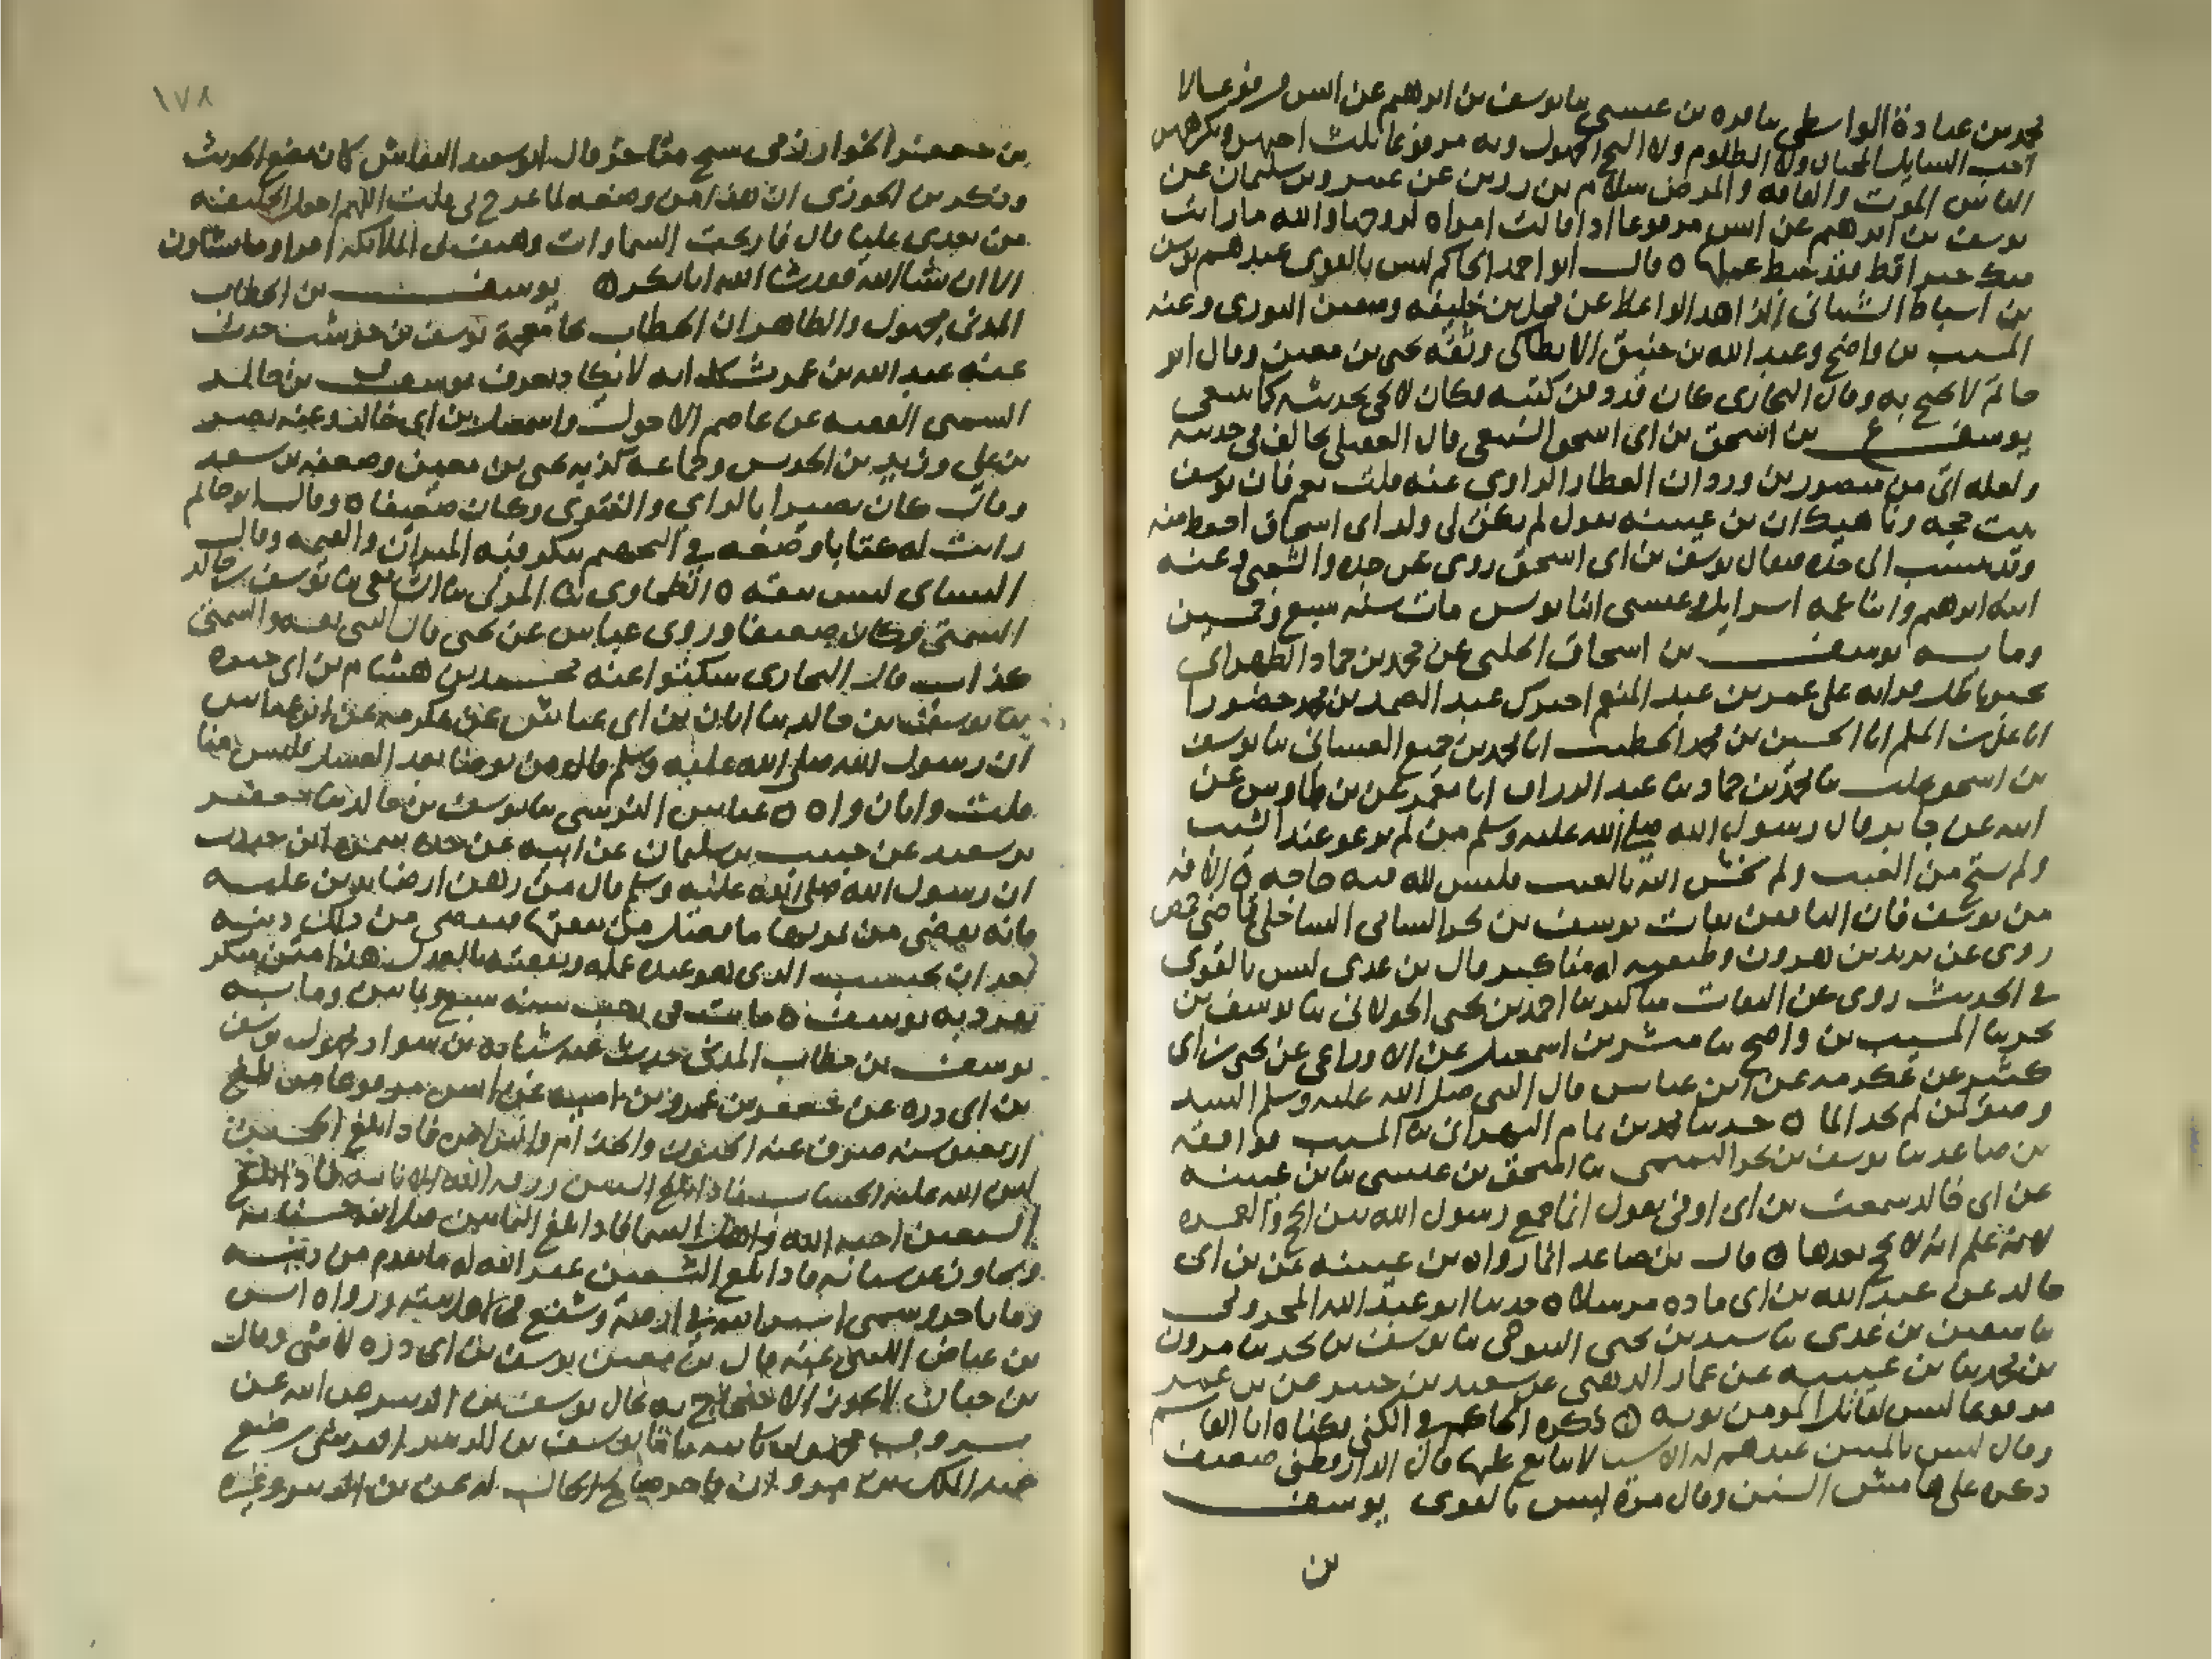 محمد بن عبادة الواسطي ثنا قرة بن عيسى ثنا يوسف بن ابرهيم عن انس مرفوعا لا
الناس الموت والفاقه والمرض سلام بن رزين عن عمرو بن سليمان عن
يوسف بن ابرهيم عن انس مرفوعا اذا قالت امراه لزوجها والله ما رايت
منك خيرا قط فقد حبط عملها ٥ قال ابو احمد الحاكم ليس بالقوي عندهم يوسف
بن اسباط الشيباني الزاهد الواعظ عن محل بن خليفه وسفين الثوري وعنه
المسيب بن واضح وعبد الله بن خبيق الانطاكي وثقه يحيى بن معين وقال ابو
حاتم لا يحتج به وقال البخاري كان قد دفن كتبه فكان لا يجي بحديثه كما ينبغي
يوسف ع بن اسحق بن ابي اسحق السبيعي قال العقيلي يخالف في حديثه
ولعله اتى من منصور بن وردان العطار الراوي عنه قلت نعم فان يوسف
ثبت حجه وناهيك ان بن عيينه يقول لم يكن في ولد ابي اسحاق احفظ منه
وقد ينسب الى جده فيقال يوسف بن ابي اسحق روى عن جده والشعبي وعنه
ابنه ابرهيم وابنا عمه اسرايل وعيسى ابنا يونس مات سنه سبع وخمسين
ومايه يوسف بن اسحاق الحلبي عن محمد بن حماد الطهراني
بخبر باطل قراته على عمر بن عبد المنعم اخبرك عبد الصمد بن محمد حضورا
انا علي بن المسلم انا الحسين بن محمد الخطيب انا محمد بن جميع الغساني ثنا يوسف
بن اسحق بحلب ثنا محمد بن حماد ثنا عبد الرزاق انا معمر عن بن طاوس عن
ابيه عن جابر قال رسول الله صلى الله عليه وسلم من لم يرعو عند الشيب
ولم يستح من العيب ولم يخش الله بالغيب فليس لله فيه حاجه ٥ الافه
من يوسف فان الباقين ثقات يوسف بن بحر الشامي الساحلي قاضي حمص
روى عن يزيد بن هرون وطبقته له مناكير قال بن عدي ليس بالقوي
في الحديث روى عن الثقات مناكير ثنا احمد بن يحيى الخولاني ثنا يوسف بن
بحر ثنا المسيب بن واضح ثنا مبشر بن اسمعيل عن الاوزاعي عن يحيى بن ابي
كثير عن عكرمه عن ابن عباس قال النبي صلى الله عليه وسلم النبيذ
وضو لمن لم يجد الما ٥ حدثنا محمد بن تمام البهراني ثنا المسيب فوافقه
بن صاعد ثنا يوسف بن بحر التميمي ثنا اسحق بن عيسى ثنا بن عيينه
عن ابي خالد سمعت بن ابي اوفى يقول انما جمع رسول الله بين الحج والعمره
لانه علم انه لا يحج بعدها ٥ قال بن صاعد انما رواه بن عيينه عن بن ابي
خالد عن عبد الله بن ابي قتاده مرسلا ٥ حدثنا ابو عبد الله المخرومي
بن محمد ثنا بن عيينه عن عمار الدهني عن سعيد بن جبير عن بن عمر
مرفوعا ليس لقاتل المومن توبه ٥ ذكره الحاكم في الكنى فكناه ابا القاسم
وقال ليس بالمتين عندهم له اشيا لا يتابع عليها قال الدارقطني ضعيف
ذكره على هامش السنن وقال مرة ليس بالقوي يوسف
بن
١٧٨
بن جعفر الخوارزمي شيخ متاخر قال ابو سعيد النقاش كان يضع الحديث
وذكر بن الجوزي ان هذا من وضعه لما عرج بي قلت اللهم اجعل الخليفه
من بعدي عليا قال فارتجت السماوات وهتف بي الملايكه اقرا وما تشاون
الا ان يشا الله قد شا الله ابا بكر ٥ يوسف بن الخطاب
المدني مجهول والظاهر ان الخطاب يوسف بن حوشب حدث
عنه عبد الله بن عمر مشكدانه لا يكاد يعرف يوسف ق بن خالد
السمتي الفقيه عن عاصم الاحول واسمعيل بن ابي خالد وعنه نصر
بن علي وزيد بن الحريش وجماعه كذبه يحيى بن معين وضعفه بن سعد
وقال كان بصيرا بالراي والفتوى وكان ضعيفا ٥ وقال ابو حاتم
رايت له كتابا وضعه في التجهم ينكر فيه الميزان والقيمه وقال
النساي ليس بثقه ٥ الطحاوي ثنا المزني ثنا الشافعي ثنا يوسف بن خالد
السمتي وكان ضعيفا وروى عباس عن يحيى قال البتي ثقه والسمتي
كذاب قال البخاري سكتوا عنه محمد بن هشام بن ابي خيره
ثنا يوسف بن خالد ثنا ابان بن ابي عياش عن عكرمه عن ابن عباس
ان رسول الله صلى الله عليه وسلم قال من توضا بعد الغسل فليس منا
قلت وابان واه ٥ عباس النرسي ثنا يوسف بن خالد ثنا جعفر
بن سعيد عن خبيب بن سليمان عن ابيه عن جده سمره ابن جندب
ان رسول الله صلى الله عليه وسلم قال من رهن ارضا بدين عليه
فانه يقضي من ثمرتها ما فضل من نفقتها فيقضي من ذلك دينه
بعد ان يحتسب الذي هو عنده عمله ونفقته بالعدل هذا متن منكر
تفرد به يوسف ٥ مات في رجب سنه تسع وثمانين ومايه
يوسف بن خطاب المدني حديث عنه شبابه بن سوار مجهول يوسف
بن ابي ذره عن جعفر بن عمرو بن اميه عن انس مرفوعا من بلغ
اربعين سنه صرف عنه الجنون والجذام والبرص فاذا بلغ الخمسين
لين الله عليه الحساب فاذا بلغ الستين رزقه الله الانابه فاذا بلغ
السبعين احبه الله واهل السما فاذا بلغ الثمانين قبل الله حسناته
وتجاوز عن سياته فاذا بلغ التسعين غفر الله له ما تقدم من ذنبه
وما تاخر وسمى اسير الله في ارضه وشفع في اهل بيته ورواه انس
بن عياض الليثي عنه قال بن معين يوسف بن ابي ذره لا شي وقال
بن حبان لا يجوز الاحتجاج به بحال يوسف بن الزبير عن ابيه عن
عبد الملك بن مروان فاخر صالح الحال له عن بن الزبير وغيره